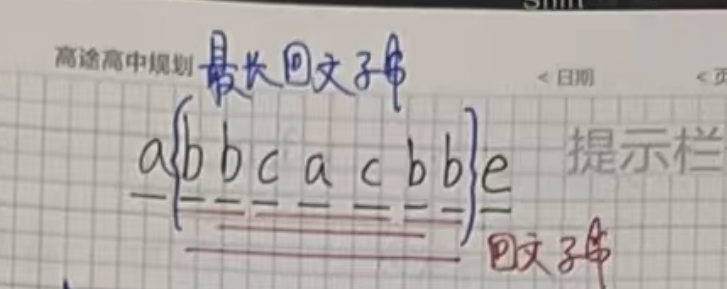 Shift
高途高中规划 最长回文子串 <日期 <页
a{bbcacbb}e 提示栏
回文子串